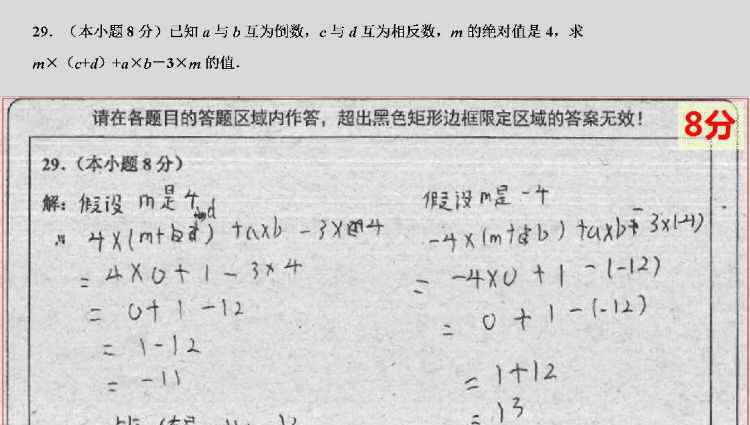 29.（本小题 8 分）已知 a 与 b 互为倒数，c 与 d 互为相反数，m 的绝对值是 4，求
m×（c+d）+a×b－3×m 的值.
请在各题目的答题区域内作答，超出黑色矩形边框限定区域的答案无效！
8分
29.（本小题 8 分）
解：假设 m是 4
4×(m+d) +a×b －3×4
= 4×0+1－3×4
= 0+1－12
= 1－12
= －11
假设m是 －4
－4×(m+b) +a×b－3×(-4)
= －4×0+1－(-12)
= 0+1－(-12)
= 1+12
= 13